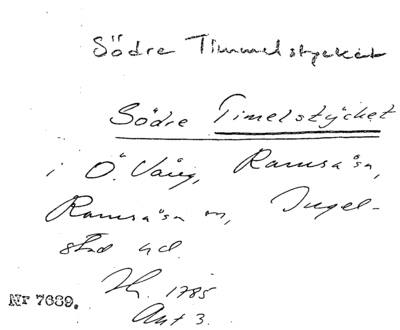 Södre Timmelstycket
Södre Timelstycket
i Ö. Vång, Ramsåsa,
Ramsåsa sn, Ingel-
stad hd.
Sk. 1785
Akt 3.
Nr 7689.